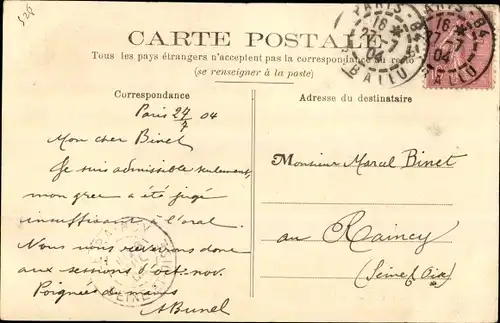 528
CARTE POSTALE
Tous les pays étrangers n'acceptent pas la correspondance au recto
(se renseigner à la poste)
PARIS 84
16
27-7
04
BALLU
PARIS 84
16
27-7
04
BALLU
Correspondance
Paris 27/7 04
Mon cher Binet
Je suis admissible seulement,
mon grec a été jugé
insuffisant à l'oral.
Nous nous reverrons donc
aux sessions d'oct-nov.
Poignées de mains
ABunel
Adresse du destinataire
Monsieur Marcel Binet
au Raincy
(Seine & Oise)